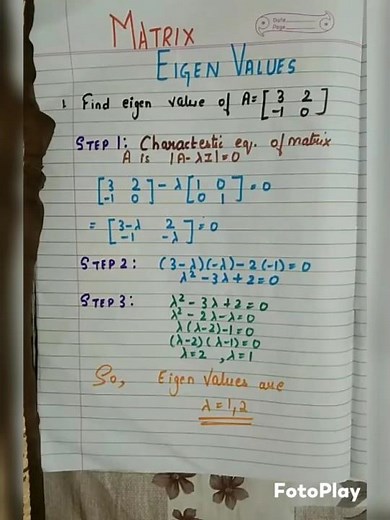 MATRIX
Date
Page
EIGEN VALUES
1. Find eigen value of A = [3 2
-1 0]
STEP 1: Charactestic eq. of matrix
A is |A-λI|=0
[3 2
-1 0] - λ [1 0
0 1] = 0
= [3-λ 2
-1 -λ] = 0
STEP 2: (3-λ)(-λ)-2(-1)=0
λ²-3λ+2=0
STEP 3: λ²-3λ+2=0
λ²-2λ-λ=0
λ(λ-2)-1=0
(λ-2)(λ-1)=0
λ=2, λ=1
So, Eigen Values are
λ=1,2
FotoPlay